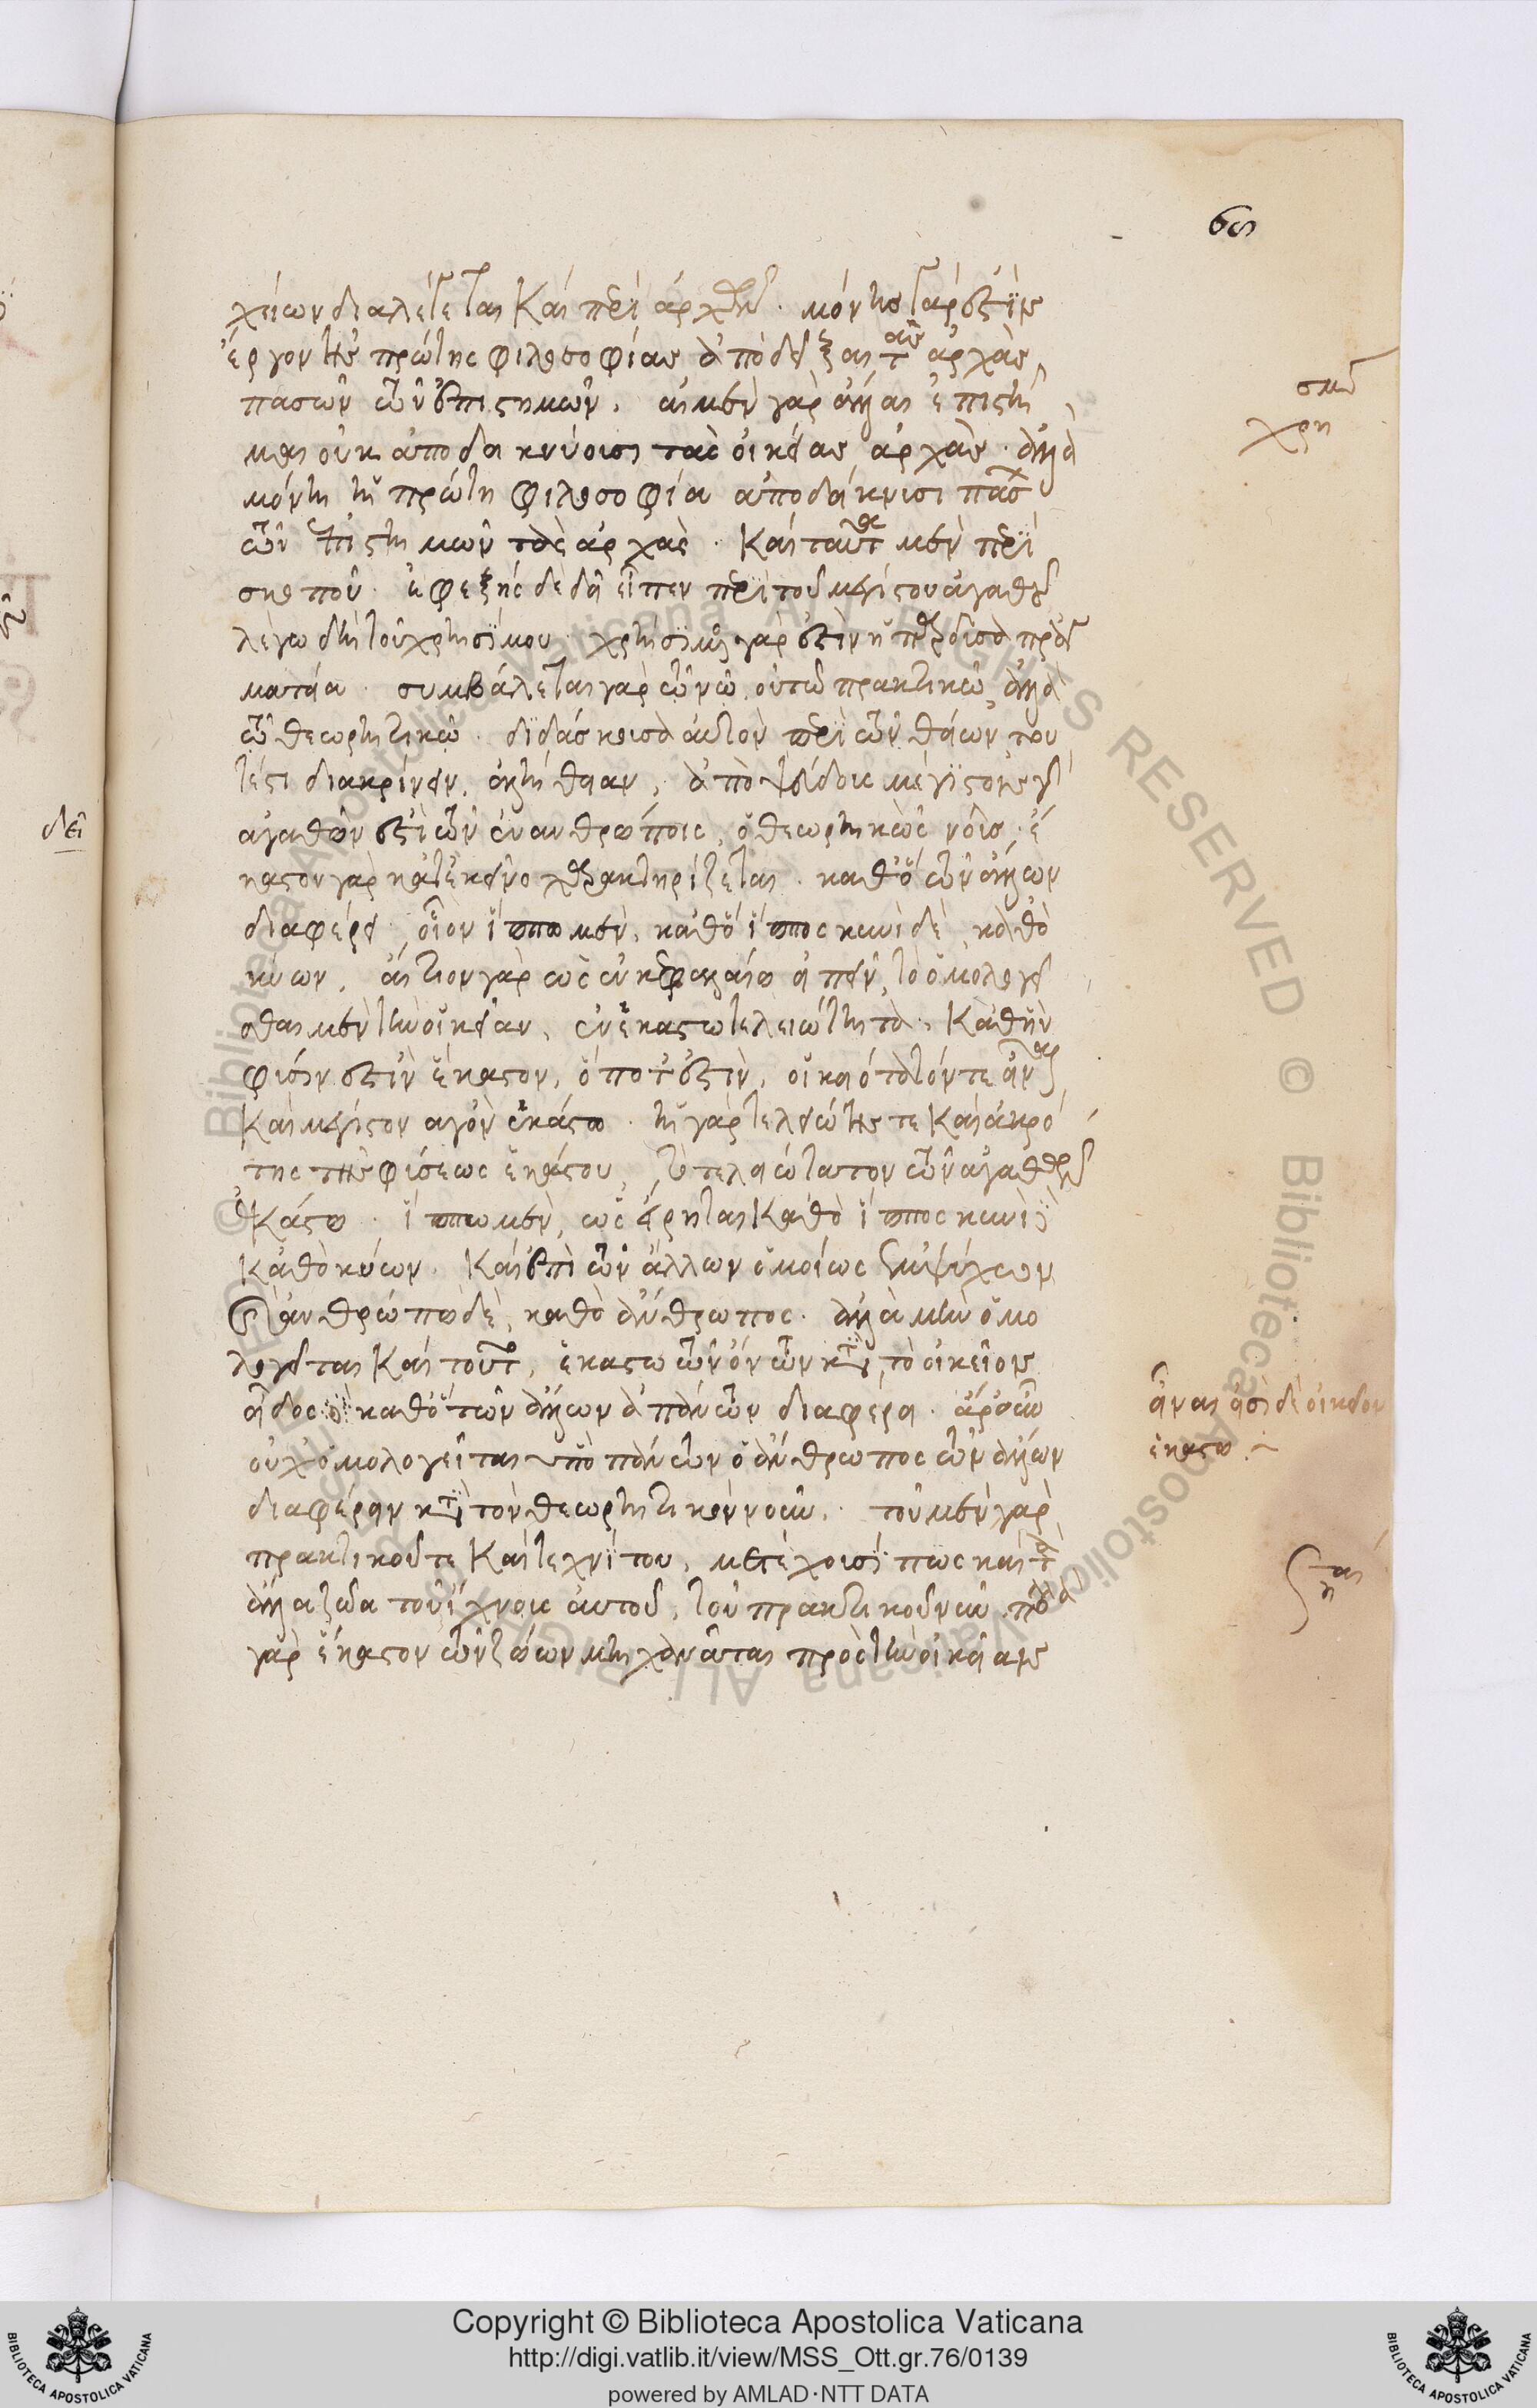 66
χείων διαλέγεται καὶ περὶ ἀρχῶν. μόνης γάρ ἐστιν
ἔργον τῆς πρώτης φιλοσοφίας ἀποδεῖξαι τὰς ἀρχὰς
πασῶν τῶν ἐπιστημῶν. αἱ μὲν γὰρ ἄλλαι ἐπιστῆ
μαι οὐκ ἀποδεικνύουσι τὰς οἰκείας ἀρχὰς. ἀλλὰ
μόνη ἡ πρώτη φιλοσοφία ἀποδείκνυσι πασῶν
τῶν ἐπιστημῶν τὰς ἀρχὰς. καὶ ταῦτα μὲν περὶ
σκοποῦ. ἐφεξῆς δὲ δεῖ εἰπεῖν περὶ τοῦ μεγίστου ἀγαθοῦ
λέγω δὴ τοῦ χρησίμου. χρήσιμος γάρ ἐστιν ἡ παροῦσα πραγ
ματεία. συμβάλλεται γὰρ τῷ νῷ οὐ τῷ πρακτικῷ, ἀλλὰ
τῷ θεωρητικῷ. διδάσκουσα αὐτὸν περὶ τῶν θείων του
τέστι διακρίνειν ἀλήθειαν, ἀπὸ ψεύδους μέγιστον
ἀγαθῶν ἐστὶ τῶν ἐν ἀνθρώποις, ὁ θεωρητικὸς νοῦς. ἕ
καστον γὰρ κατ' ἐκεῖνο χαρακτηρίζεται. καθ' ὃ τῶν ἄλλων
διαφέρει, οἷον ἵππω μὲν, καθὸ ἵππος κυνὶ δὲ, καθὸ
κύων. αἴτιον γὰρ ὡς ἐν κεφαλαίω εἰπεῖν, τὸ ὁμολογεῖ
σθαι μὲν τὴν οἰκείαν, ἐν ἑκάστω τελειότητα. καθ' ἣν
φύσιν ἐστὶν ἕκαστον, ὅ ποτ' ἐστὶν,
καὶ μέγιστον ἀγαθὸν ἑκάστω. ἡ γὰρ τελειότης τε καὶ ἀκρό
της τῆς φύσεως ἑκάστου, τὸ τελειώτατον τῶν ἀγαθῶν
ἑκάστω. ἵππω μὲν, ὡς εἴρηται καθὸ ἵππος κυνὶ
καθὸ κύων. καὶ ἐπὶ τῶν ἄλλων ὁμοίως ἐμψύχων
ἀνθρώπω δὲ, καθὸ ἄνθρωπος. ἀλλὰ μὴν ὁμο
λογεῖται καὶ τοῦτο, ἑκάστω τῶν ὄντων κατὰ τὸ οἰκεῖον
εἶδος καθ' ὃ τῶν ἄλλων ἁπάντων διαφέρει. ἆρ' οὖν
οὐχ' ὁμολογεῖται ὑπὸ πάντων ὁ ἄνθρωπος τῶν ἄλλων
διαφέρειν κατὰ τὸν θεωρητικὸν νοῦν. τοῦ μὲν γὰρ
πρακτικοῦ τε καὶ τεχνίτου, μετέχουσί πως καὶ τὰ
ἄλλα ζῶα τοῦ ἴχνους αὐτοῦ, τοῦ πρακτικοῦ νοῦ. πολλὰ
γὰρ ἕκαστον τῶν ζώων μηχανᾶται πρὸς τὴν οἰκείαν
χρη
εἶναι
ἑκάστω
δεῖ
Copyright © Biblioteca Apostolica Vaticana
http://digi.vatlib.it/view/MSS_Ott.gr.76/0139
powered by AMLAD·NTT DATA
BIBLIOTECA APOSTOLICA VATICANA
BIBLIOTECA APOSTOLICA VATICANA